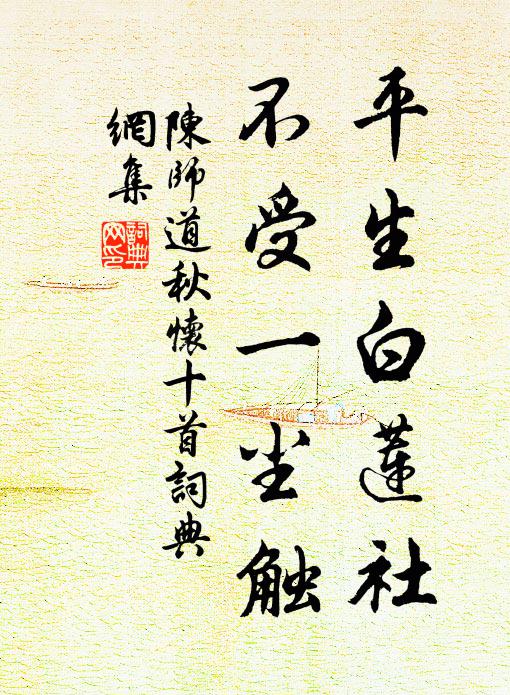 平生白蓮社
不受一尘触
陳師道秋懷十首詞典
網集
詞典
网印